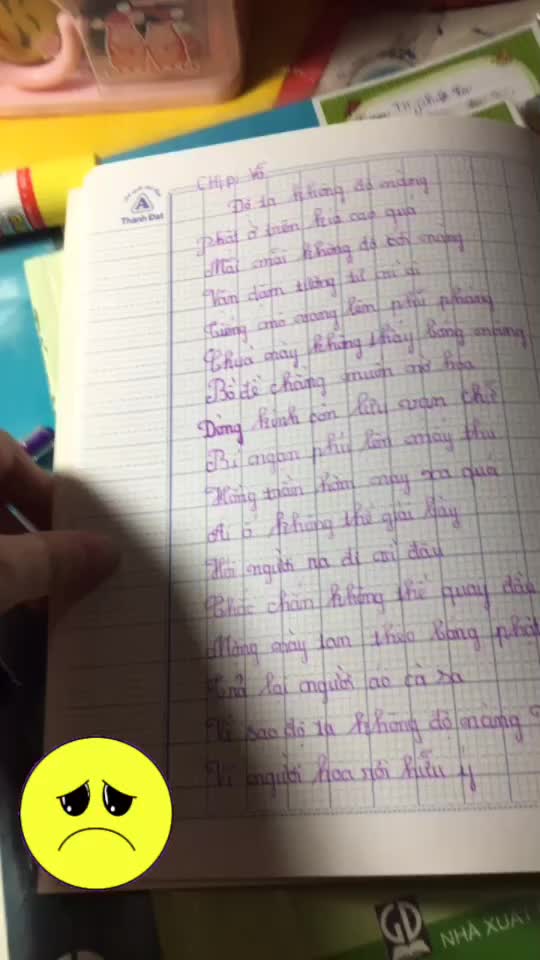 Thành Đạt
Chịp Vô
Độ ta không độ nàng
Phật ở trên kia cao quá
Mãi mãi không độ tới nàng
Vẫn đám tương tư
Tiếng mõ vang lên phũ phàng
Chùa này không thấy bóng nàng
Bồ đề chẳng muốn nở hoa
Dòng kinh còn lưu vạn chữ
Bỉ ngạn phủ lên mấy thu
Hồng trần hôm nay xa quá
Ái ố không thể giãi bày
Hỏi người ra đi vì đâu
Chắc chắn không thể quay đầu
Mộng này tan theo bóng phật
Trả lại người áo cà sa
Vì sao độ ta không độ nàng
Vì người hoa rơi hữu ý
GD
NHÀ XUẤT